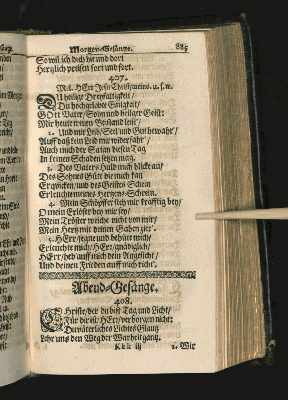 Morgen-Gesänge. 885
So wil ich dich hie und dort
Hertzlich preisen fort und fort.
407.
Mel. HErr Jesu Christ/meins. u.s.w.
DU heilige Dreyfaltigkeit/
Du hochgelobte Einigkeit/
GOtt Vater/Sohn und heiliger Geist:
Mir heute deinen Beistand leist/
2. Und mir Leib/Seel und Gut bewahr/
Auff daß kein Leid mir widerfahr/
Auch mich der Satan diesen Tag
In keinen Schaden setzen mag.
3. Des Vaters Huld mich blicke an/
Des Sohnes Güte die mich kan
Erqvicken/und des Geistes Schein
Erleuchte meines Hertzens-Schrein.
4. Mein Schöpffer steh mir kräfftig bey/
O mein Erlöser hilf mir frey/
Mein Tröster weiche nicht von mir/
Mein Hertz mit deinen Gaben zier.
5. HErr/segne und behüte mich/
Erleuchte mich/HErr/gnädiglich/
HErr/heb auff mich dein Angesicht/
Und deinen Frieden auff mich richt.
Abend-Gesänge.
408.
CHriste/der du bist Tag und Licht/
Für dir ist/HErr/verborgen nicht:
Du väterliches Lichtes Glantz
Lehr uns den Weg der Warheit gantz.
Kkk iij 2. Wir